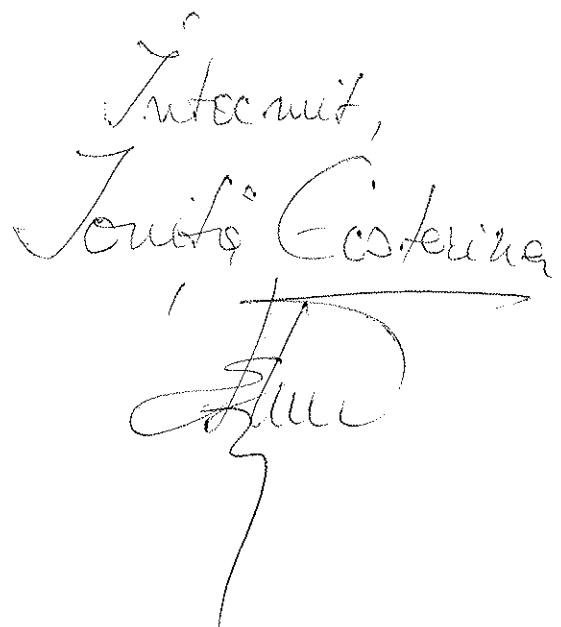 Întocmit,
Ioniță Ecaterina